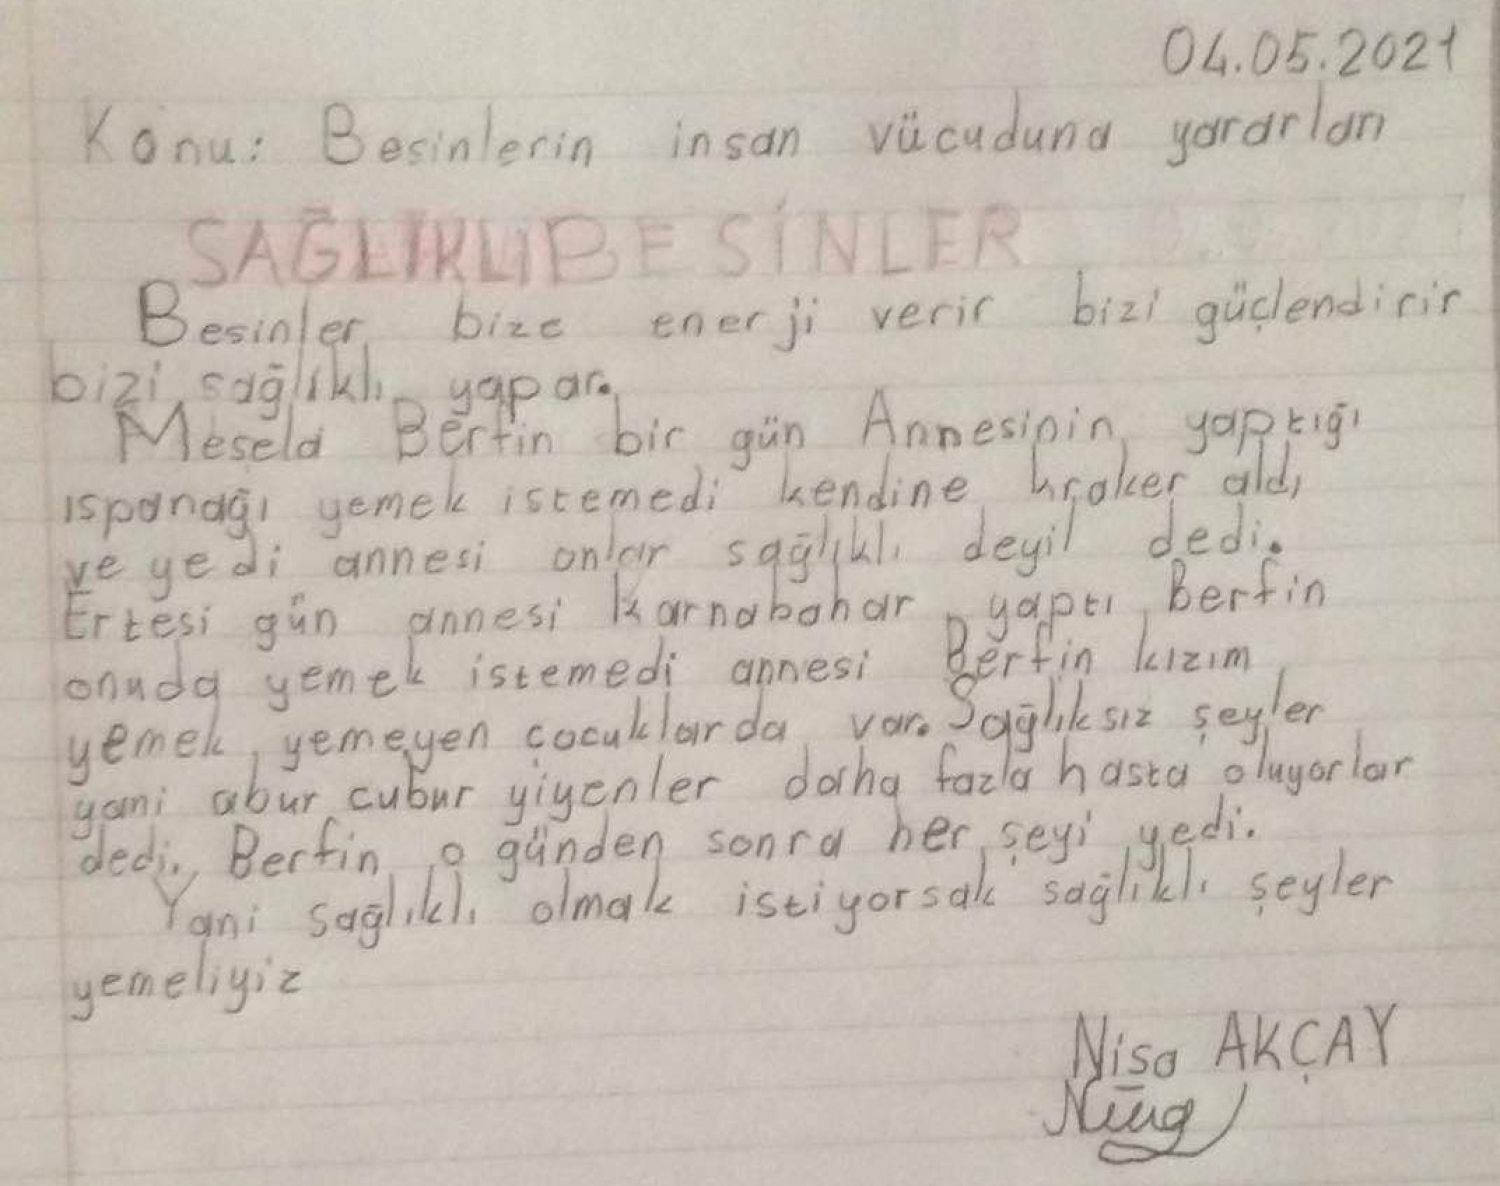 04.05.2021
Konu: Besinlerin insan vücuduna yararları
SAĞLIKLI BESİNLER
Besinler bize enerji verir bizi güçlendirir
bizi sağlıklı yapar.
Meselâ Berfin bir gün Annesinin yaptığı
ıspanağı yemek istemedi kendine kraker aldı
ve yedi annesi onlar sağlıklı deyil dedi.
Ertesi gün annesi karnabahar yaptı Berfin
onuda yemek istemedi annesi Berfin kızım
yemek yemeyen çocuklarda var. Sağlıksız şeyler
yani abur cubur yiyenler daha fazla hasta oluyorlar
dedi. Berfin o günden sonra her şeyi yedi.
Yani sağlıklı olmak istiyorsak sağlıklı şeyler
yemeliyiz
Nisa AKÇAY